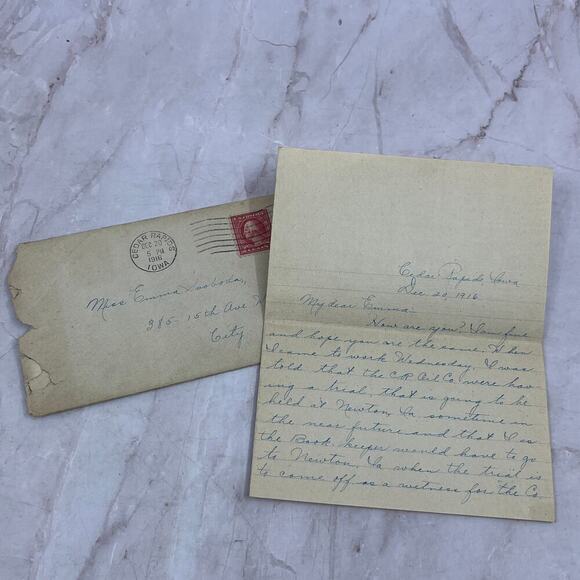 CEDAR RAPIDS
DEC 20
5 PM
1916
IOWA
Miss Emma Svoboda,
385- 15th Ave
City
Cedar Rapids, Iowa
Dec. 20, 1916.
My dear Emma:-
How are you? I am fine
and hope you are the same. When
I came to work Wednesday, I was
told that the C.R. Oil Co. were hav-
ing a trial, that is going to be
held at Newton, Ia. sometime in
the near future and that I as
the Book keeper would have to go
to Newton, Ia when the trial is
to come off as a witness for the Co.